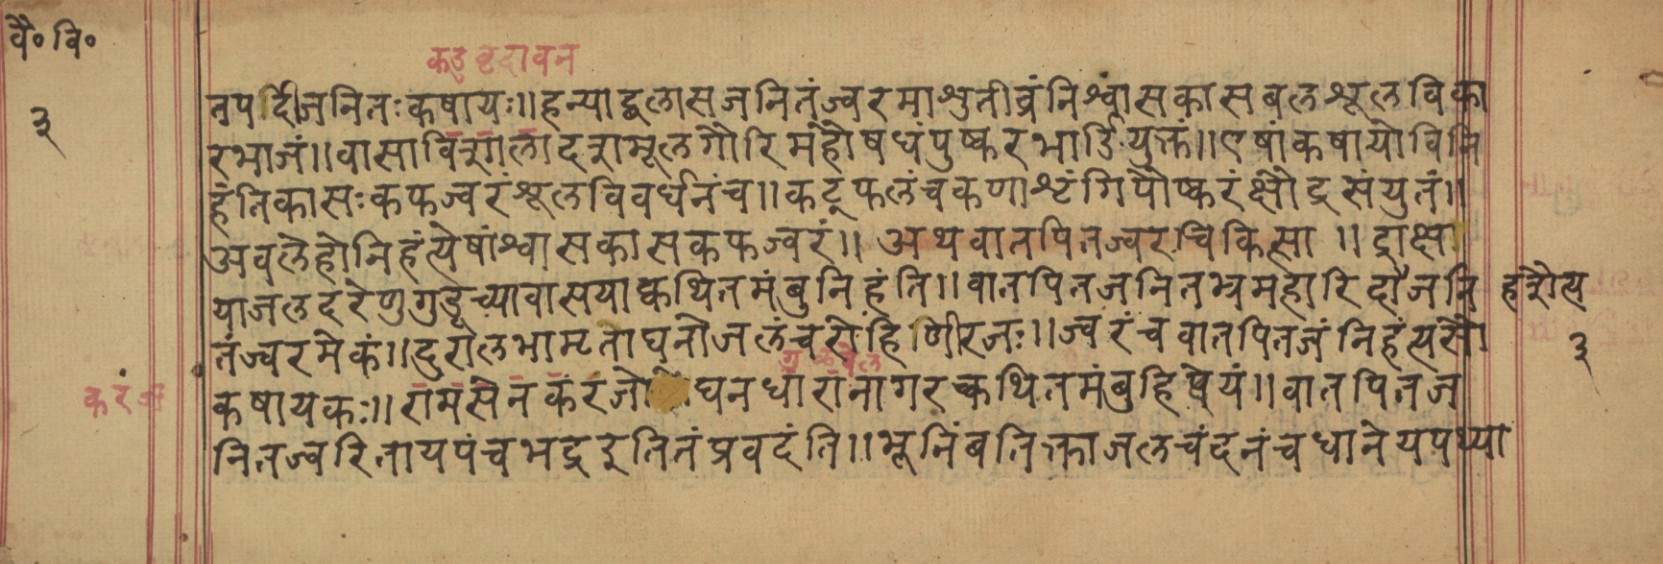 वै॰ वि॰
३
कडु दावन
नपर्दीजनितः कषायः॥ हन्याद्वलासजनितंज्वरमाशुतीव्रंनिश्वासकासबलशूलविका
रभाजं॥ वासावित्रृगलादत्रामूलगौरिमहौषधंपुष्करभार्डियुक्तं॥ एषांकषायोविनि
हंतिकासःकफज्वरंशूलविवर्धनंच॥ कट्फलंचकणाशृंगिपौष्करंक्षौद्रसंयुतं॥
अवलेहोनिहंत्येषांश्वासकासकफज्वरं॥ अथवातपितज्वरचिकित्सा॥ द्राक्षा
याजलदरेणुगुडूच्यावासयाक्वथितमंबुनिहंति॥ वातपितजनितभ्रमहारिदौजनि
तंज्वरमेकं॥ दुरालभामृतोघनौजलंचरोहिणीरजः॥ ज्वरंचवातपितजंनिहंत्यसौ
३
करंज
कषायकः॥ रामसेनकरंजो घनधारानागरक्वथितमंबुहिपेयं॥ वातपितज
नितज्वरितायपंचभद्रइतितंप्रवदंति॥ भूनिंबतिक्ताजलचंदनंचधानेयपथ्या